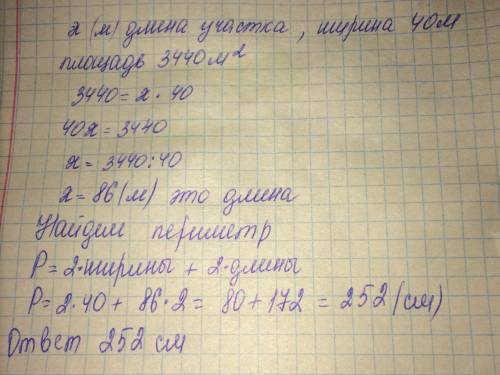 х (м) длина участка, ширина 40м
площадь 3440 м²
3440 = х · 40
40х = 3440
х = 3440 : 40
х = 86 (м) это длина
Найдем периметр
Р = 2·ширины + 2·длины
Р = 2·40 + 86·2 = 80 + 172 = 252 (см)
Ответ 252 см